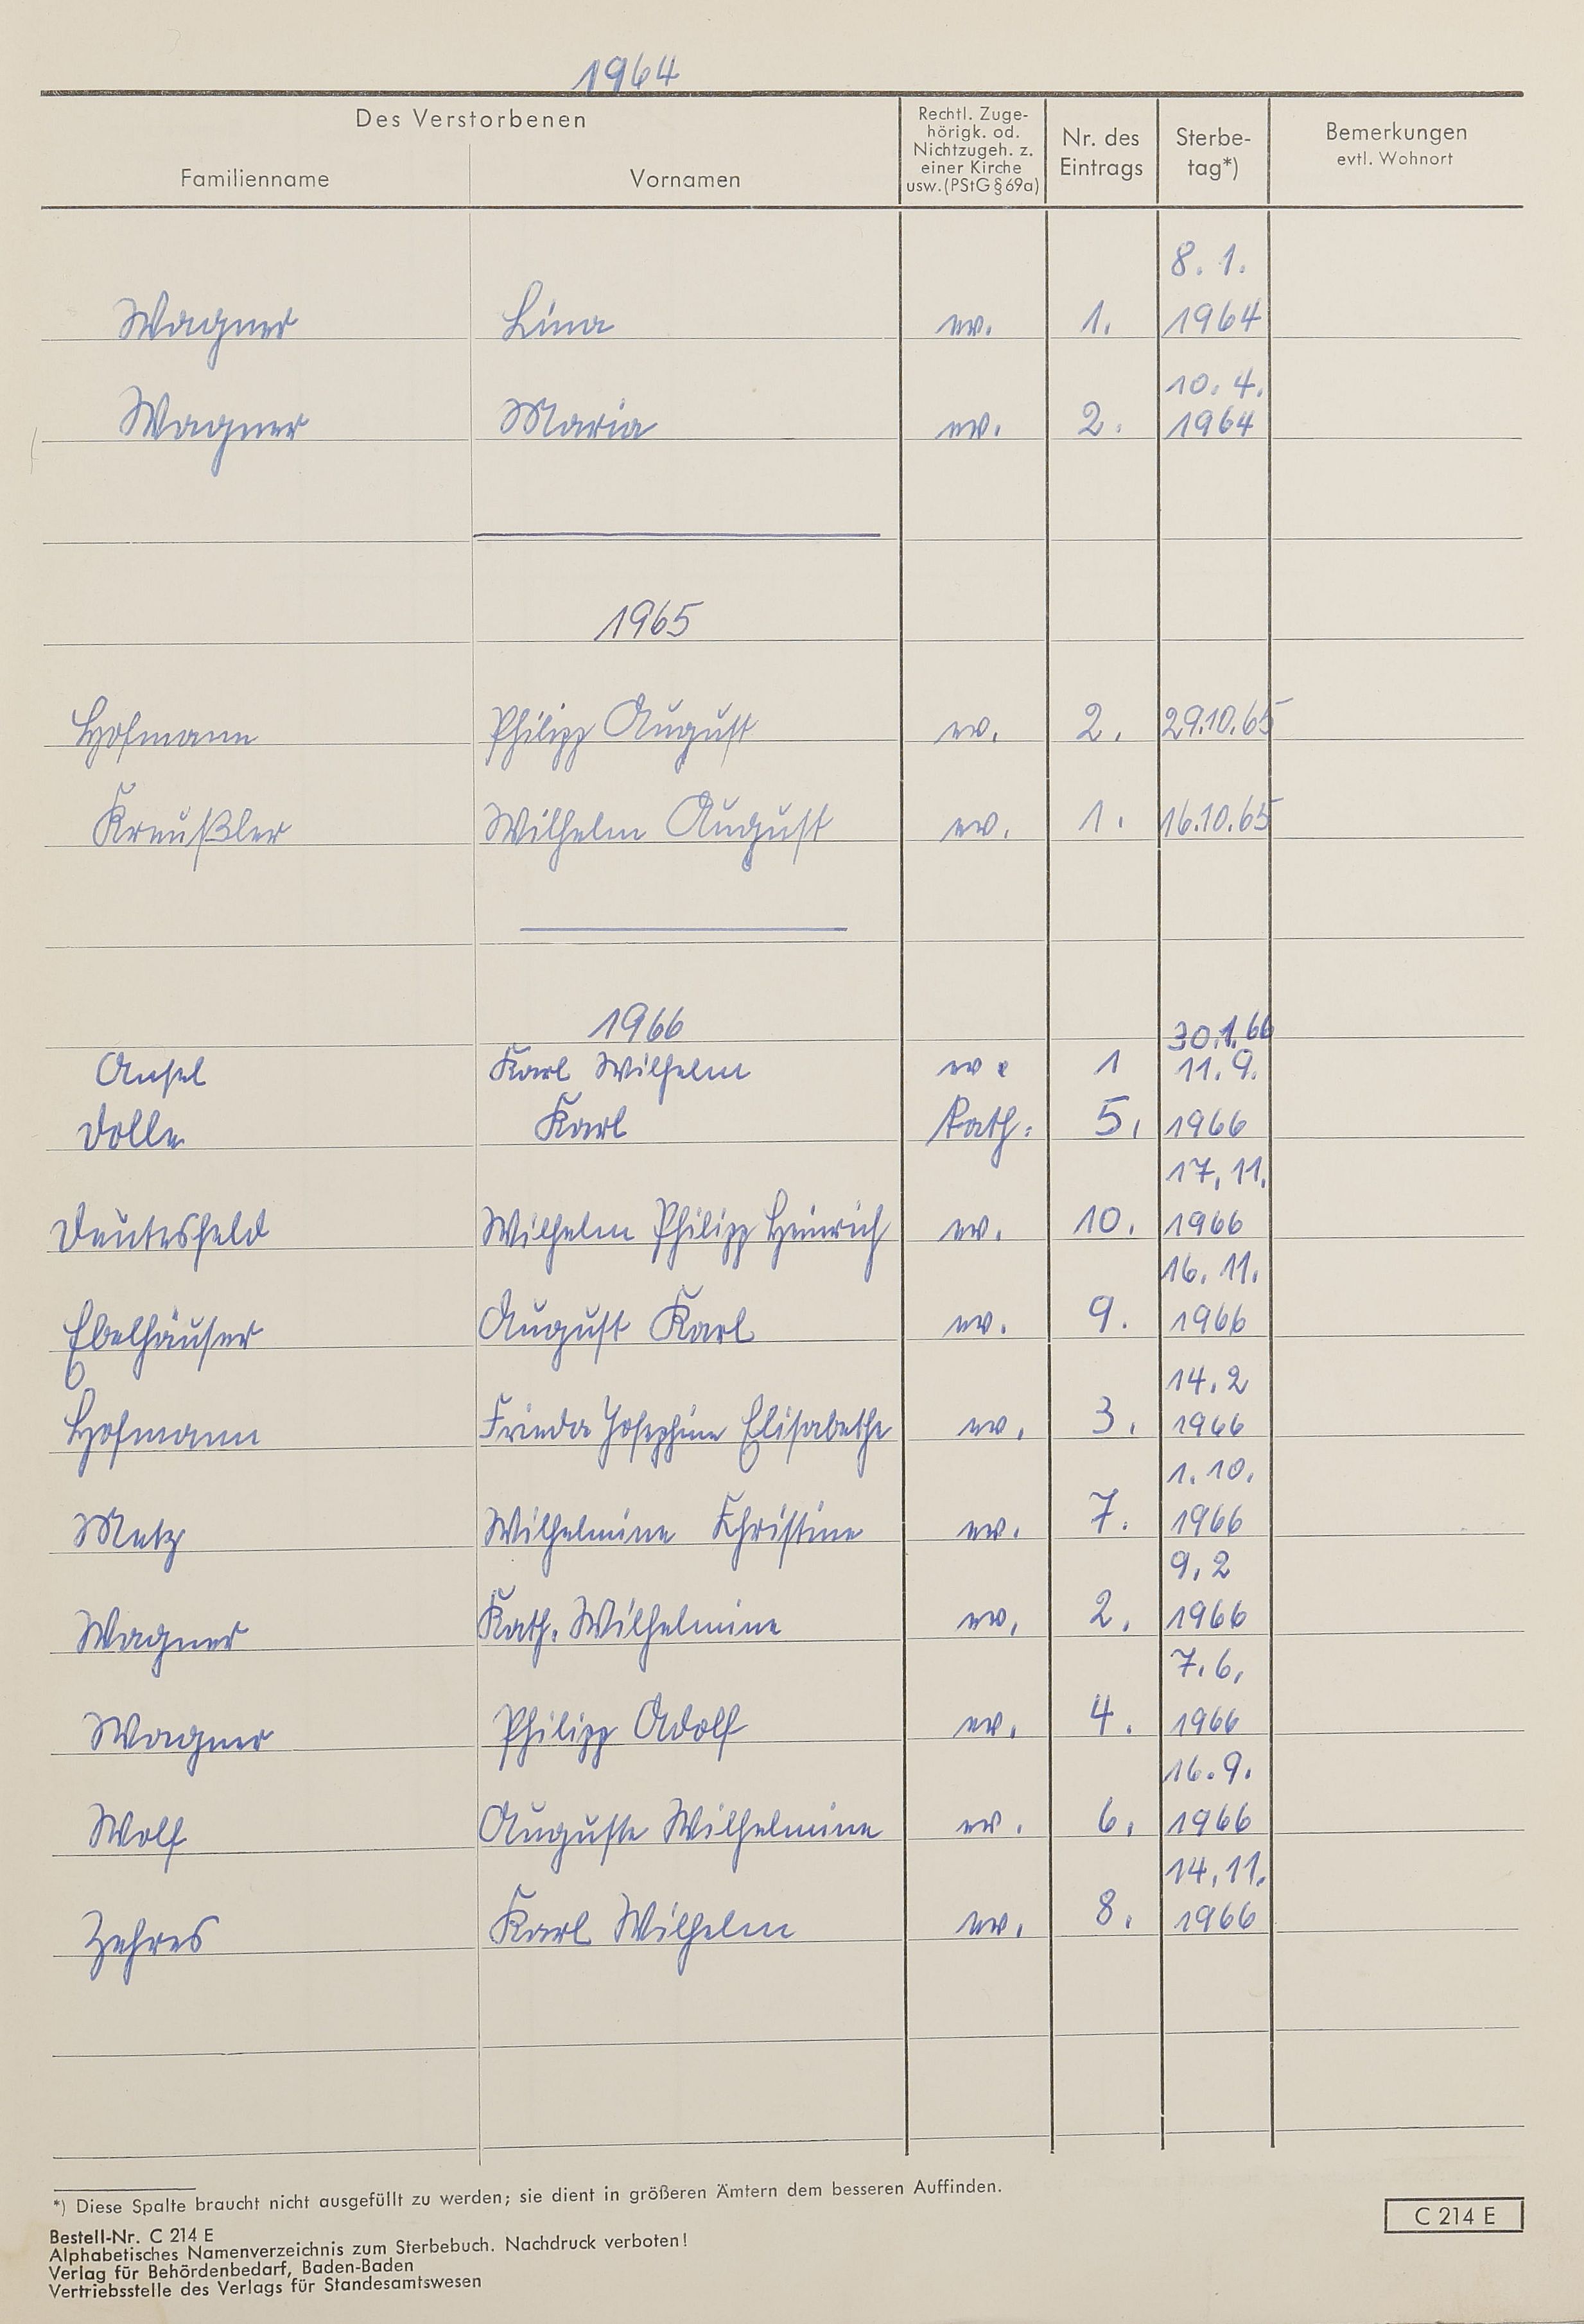 1964
Des Verstorbenen
Familienname
Vornamen
Rechtl. Zuge-
hörigk. od.
Nichtzugeh. z.
einer Kirche
usw. (PStG § 69a)
Nr. des
Eintrags
Sterbe-
tag*)
Bemerkungen
evtl. Wohnort
8. 1.
Wagner Lina ev. 1. 1964
10. 4.
Wagner Maria ev. 2. 1964
1965
Hofmann Philipp August ev. 2. 29.10.65
Kreußler Wilhelm August ev. 1. 16.10.65
1966
30.1.66
Ansel Karl Wilhelm ev. 1
11. 9.
Dolle Karl Kath. 5. 1966
17. 11.
Deutesfeld Wilhelm Philipp Heinrich ev. 10. 1966
16. 11.
Ebelhäuser August Karl ev. 9. 1966
14. 2
Hofmann Frieda Josephine Elisabethe ev. 3. 1966
1. 10.
Metz Wilhelmine Christine ev. 7. 1966
9. 2
Wagner Kath. Wilhelmine ev. 2. 1966
7. 6.
Wagner Philipp Adolf ev. 4. 1966
16. 9.
Wolf Auguste Wilhelmine ev. 6. 1966
14. 11.
Zehres Karl Wilhelm ev. 8. 1966
*) Diese Spalte braucht nicht ausgefüllt zu werden; sie dient in größeren Ämtern dem besseren Auffinden.
C 214 E
Bestell-Nr. C 214 E
Alphabetisches Namenverzeichnis zum Sterbebuch. Nachdruck verboten!
Verlag für Behördenbedarf, Baden-Baden
Vertriebsstelle des Verlags für Standesamtswesen